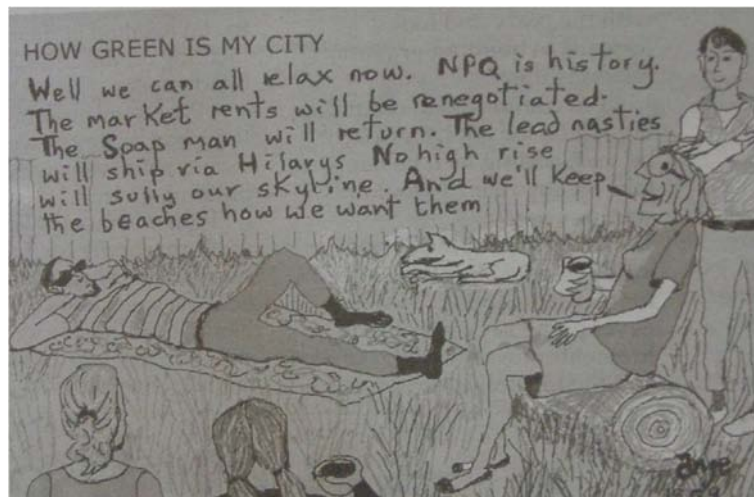 HOW GREEN IS MY CITY
Well we can all relax now. NPQ is history.
The market rents will be renegotiated.
The Soap man will return. The lead nasties
will ship via Hilarys No high rise
will sully our skyline. And we'll keep
the beaches how we want them